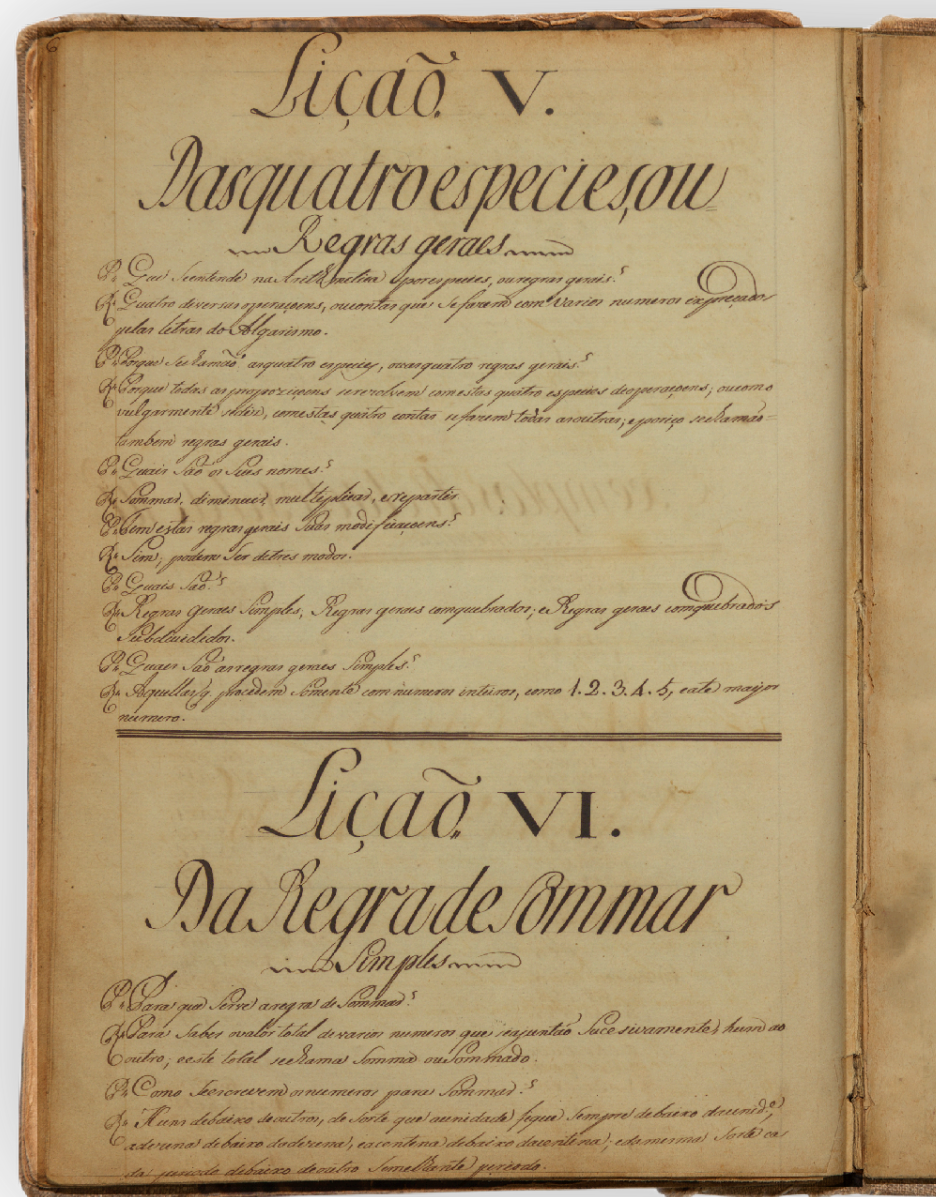 6
Lição. V.
Das quatro especies, ou
Regras geraes
P. Que se entende na Arithmetica por especies, ou regras gerais?
R. Quatro diversas operaçoens, ou contas que se fazem com varios numeros expreçados
pelas letras do Algarismo.
P. Porque se chamaõ as quatro especies, ou as quatro regras gerais?
R. Porque todas as propoziçoens se rezolvem com estas quatro especies de operaçoens; ou como
vulgarmente se dis, com estas quatro contas se fazem todas as outras; e por iço se chamaõ
tambem regras gerais.
P. Quais saõ os seus nomes?
R. Sommar, diminuir, multiplicar, e repartir.
P. Tem estas regras gerais suas modificaçoens?
R. Sim; podem ser de tres modos.
P. Quais saõ?
R. Regras geraes simples, Regras geraes com quebrados; e Regras geraes com quebrados
subdividedos.
P. Quaes saõ as regras geraes simples?
R. Aquellas q. procedem somente com numeros inteiros, como 1. 2. 3. 4. 5, e ate maijor
numero.
Lição. VI.
Da Regra de Sommar
Simples
P. Para que serve a regra de Sommar?
R. Para saber o valor total de varios numeros que se ajuntaõ sucesivamente hum ao
outro; e este total se chama Somma ou Sommado.
P. Como se escrevem os numeros para Sommar?
R. Huns debaixo de outros, de sorte que a unidade fique sempre debaixo da unid.ᵉ,
a dezena debaixo da dezena, e a centena debaixo da centena; e da mesma sorte ca
da periodo debaixo de outro semelhante periodo.